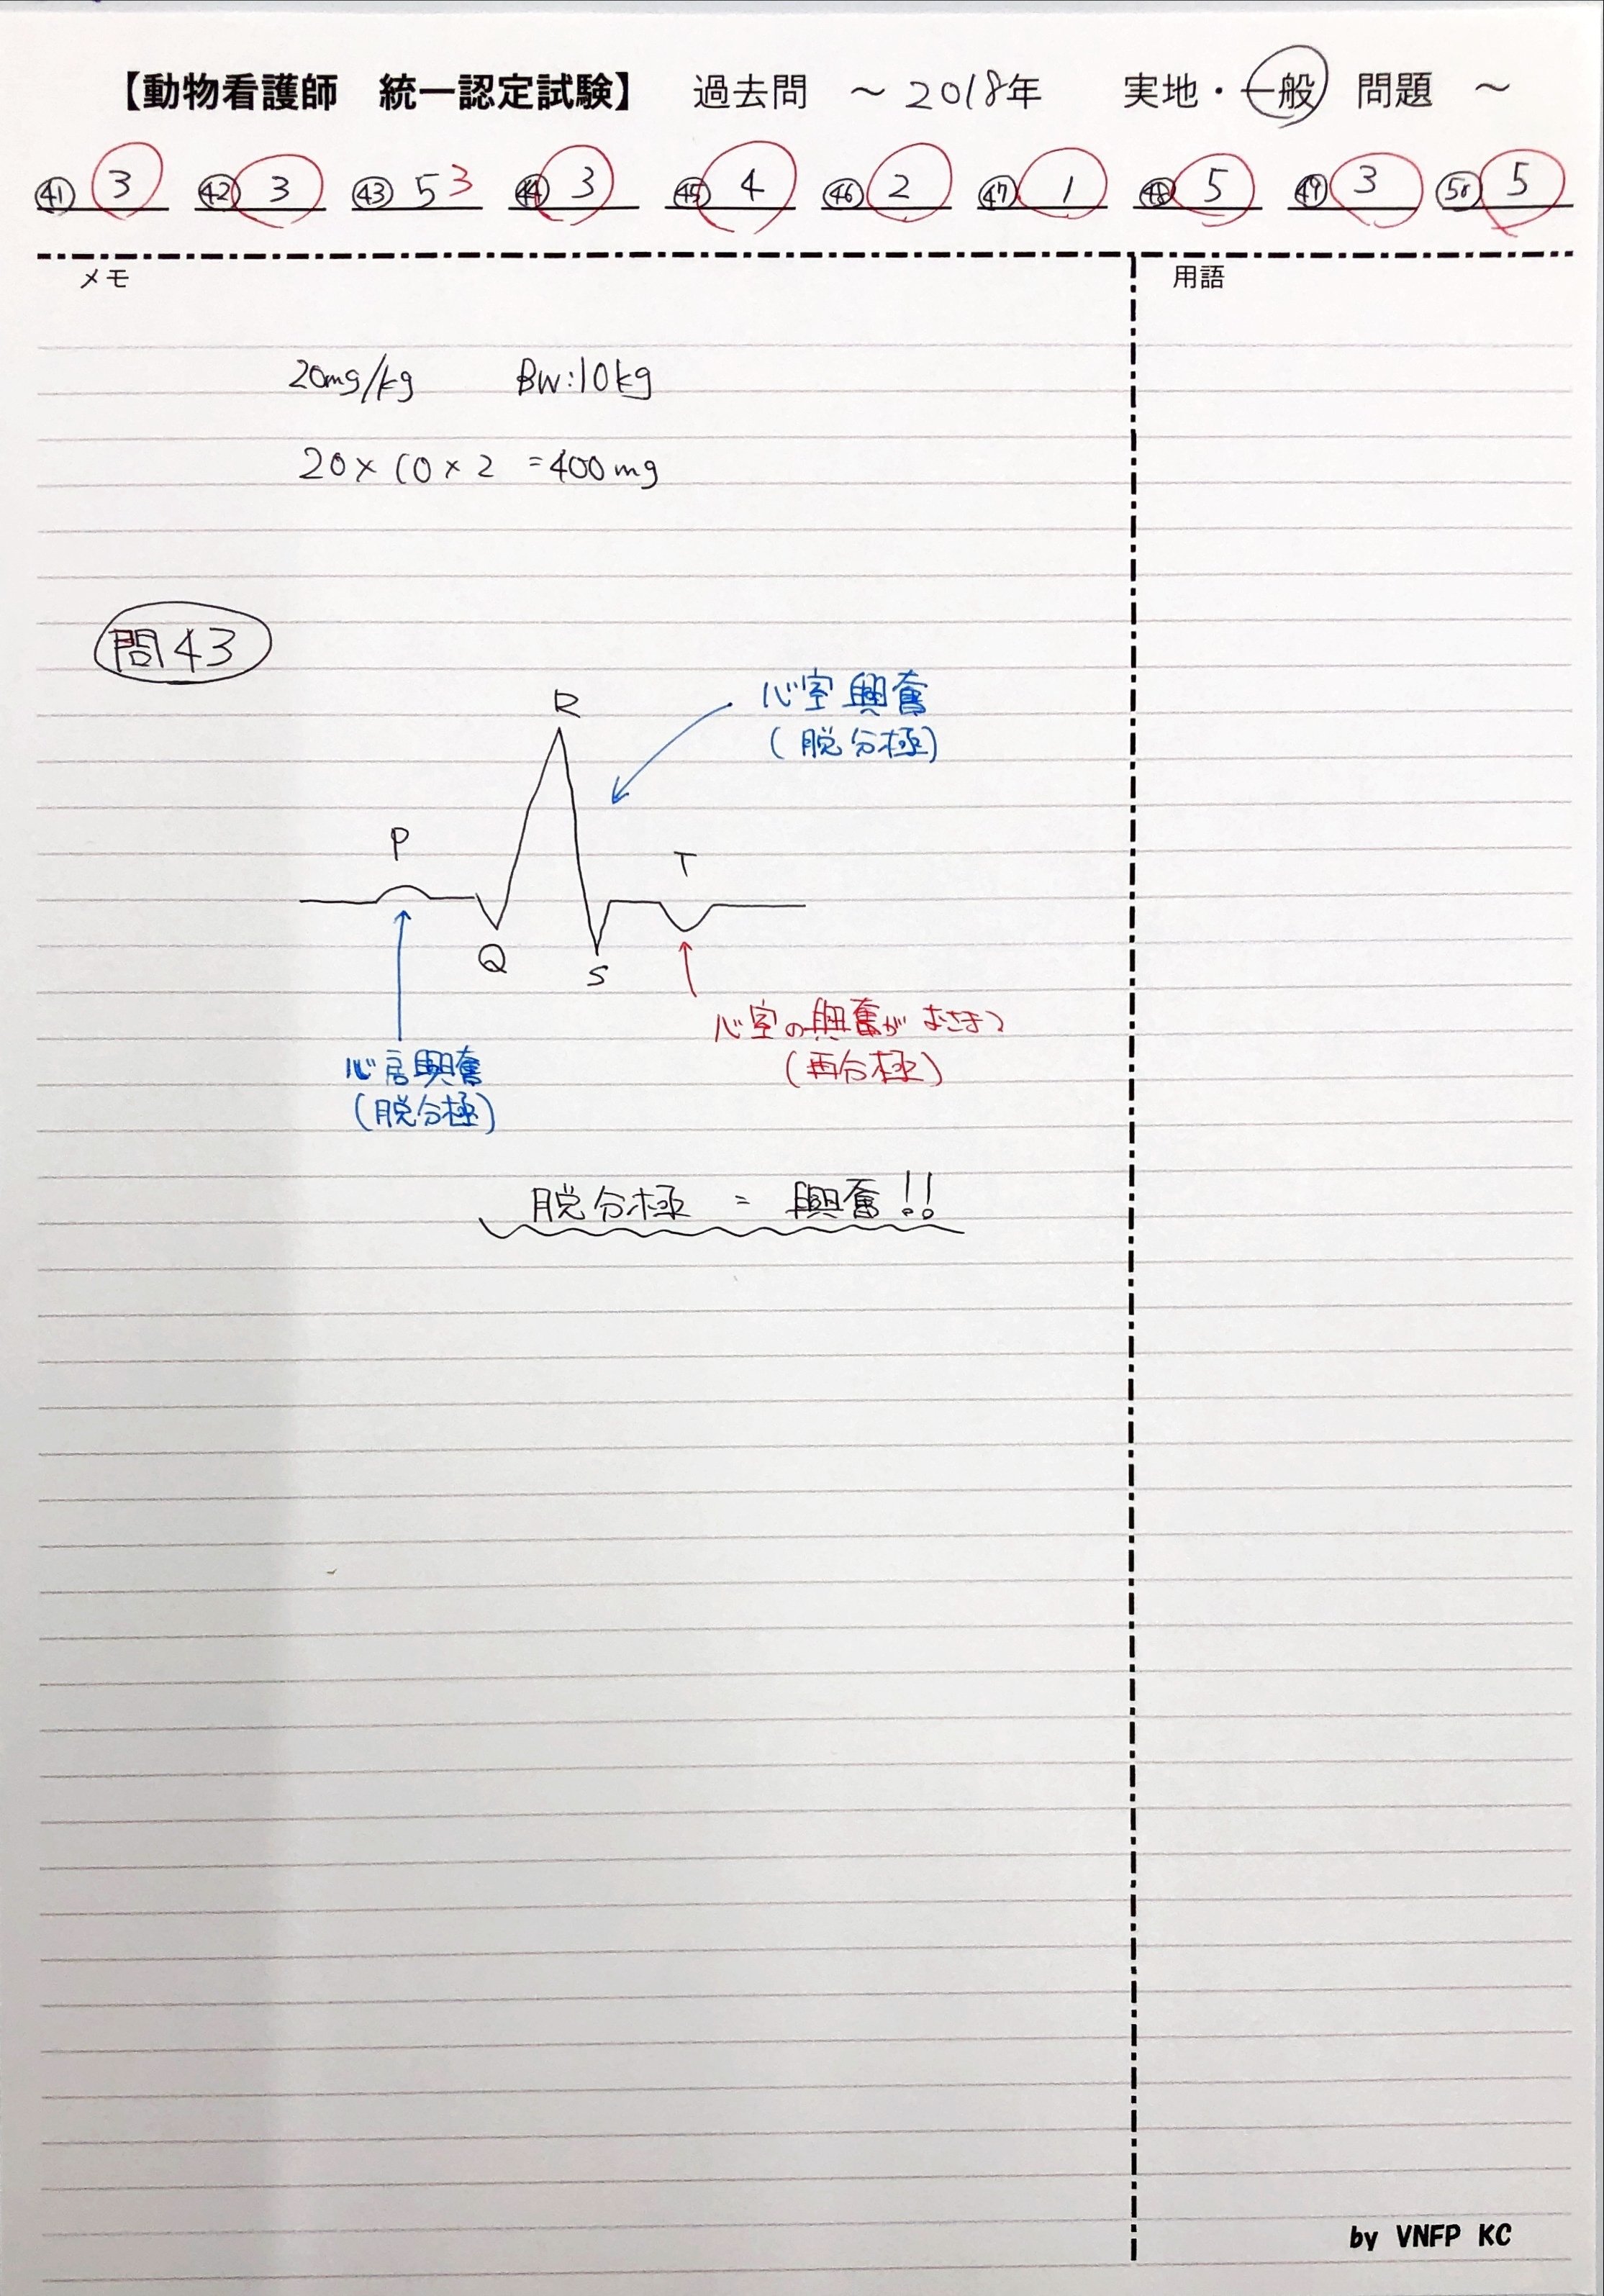 【動物看護師 統一認定試験】 過去問 ~ 2018年 実地・一般 問題 ~
㊶ 3 ㊷ 3 ㊸ 5 3 ㊹ 3 ㊺ 4 ㊻ 2 ㊼ 1 ㊽ 5 ㊾ 3 ㊿ 5
メモ
用語
20mg/kg BW:10kg
20×10×2 =400mg
問43
R
心室興奮
(脱分極)
P
T
Q
S
心室の興奮がおさまる
(再分極)
心房興奮
(脱分極)
脱分極 = 興奮!!
by VNFP KC